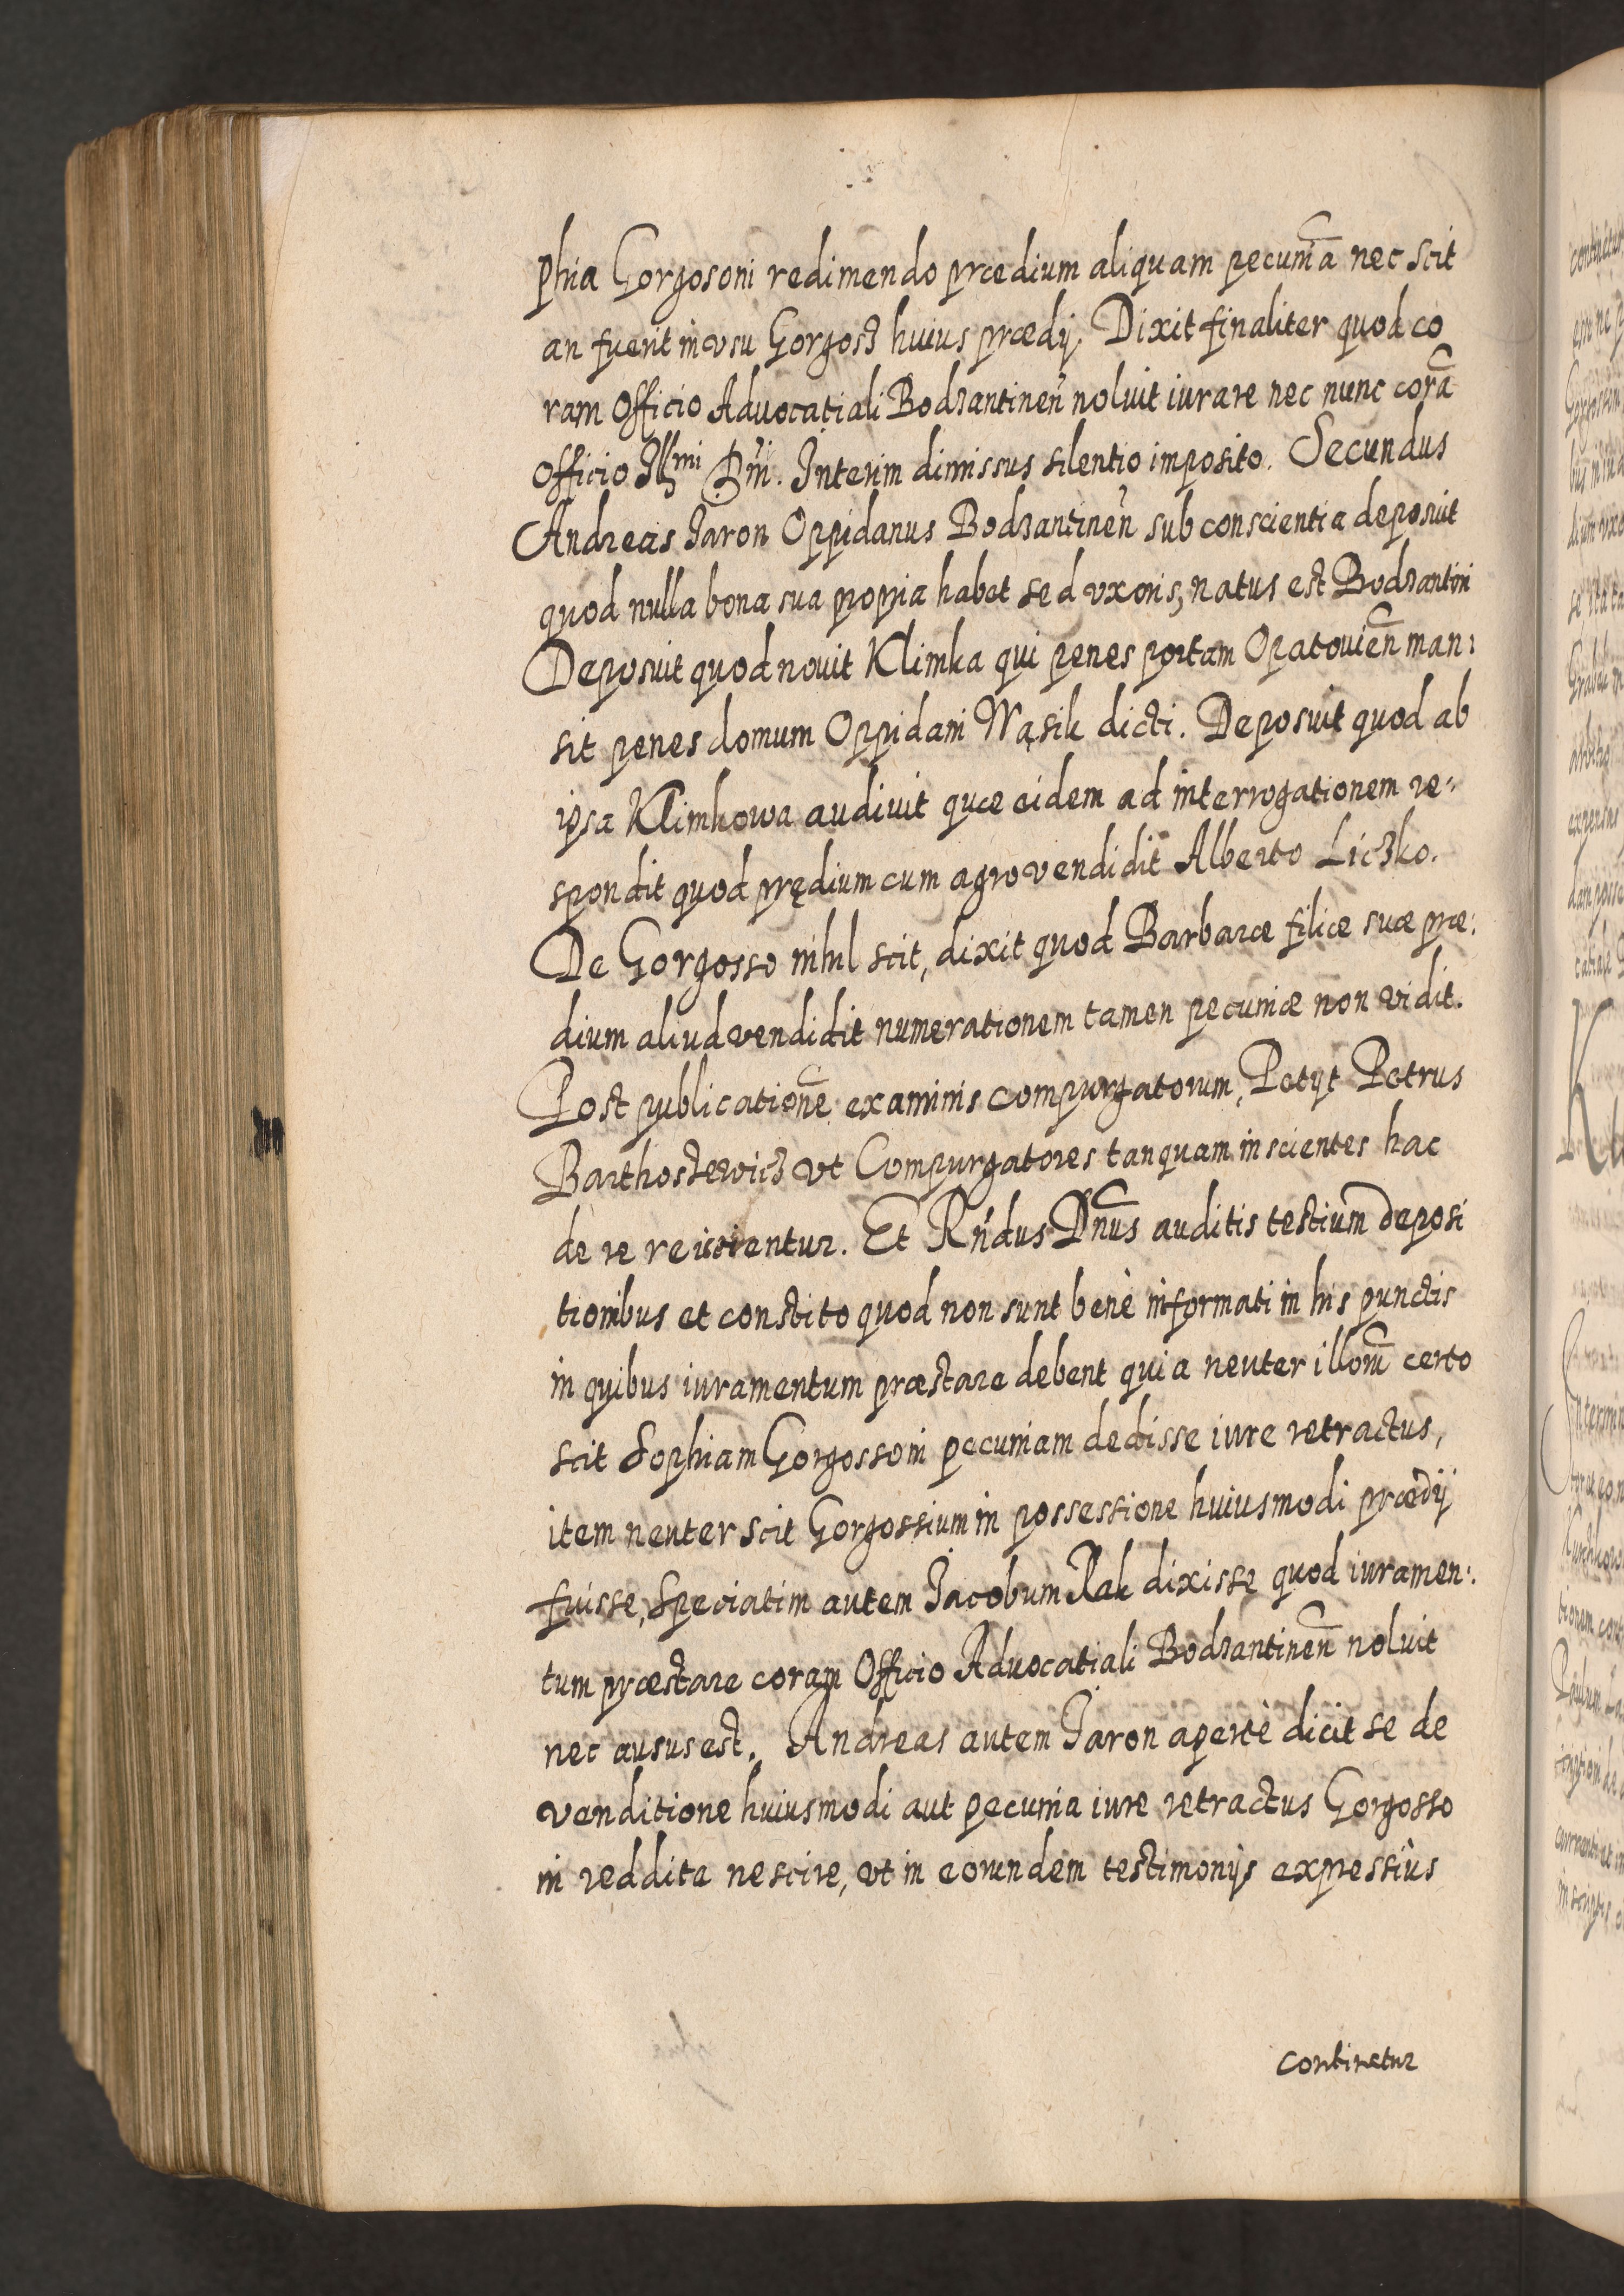 phia Gorgosoni redimendo prædium aliquam pecuniã nec scit
an fuerit in vsu Gorgosz huius prædij. Dixit finaliter quod co
ram Officio Advocatiali Bodzantineñ noluit iurare nec nunc corã
Officio Illmi Dñi. Interim dimissus silentio imposito. Secundus
Andreas Jaron Oppidanus Bodzantineñ sub conscientia deposuit
quod nulla bona sua propria habet sed vxoris, natus est Bodzantini
Deposuit quod novit Klimka qui penes portam Opatovieñ man:
sit penes domum Oppidani Wąsik dicti. Deposuit quod ab
ipsa Klimkowa audivit quæ eidem ad interrogationem re-
spondit quod prędium cum agro vendidit Alberto Liczko.
De Gorgosso nihil scit, dixit quod Barbaræ filiæ suæ præ:
dium aliud vendidit numerationem tamen pecuniæ non vidit.
Post publicationẽ examinis compurgatorum, Petijt Petrus
Barthoszewicz vt Compurgatores tanquam inscientes hac
de re reiicientur. Et Rñdus Dñus auditis testium deposi
tionibus et constito quod non sunt benè informati in his punctis
in quibus iuramentum præstare debent quia neuter illorũ certo
scit Sophiam Gorgossoni pecuniam dedisse iure retractus,
item neuter scit Gorgossium in possessione huiusmodi prædij
fuisse, Speciatim autem Jacobum Rak dixisse quod iuramen:
tum præstare coram Officio Advocatiali Bodzantineñ noluit
nec ausus est. Andreas autem Jaron apertè dicit se de
venditione huiusmodi aut pecunia iure retractus Gorgosso
ni reddita nescire, vt in eorundem testimonijs expressiùs
continetur